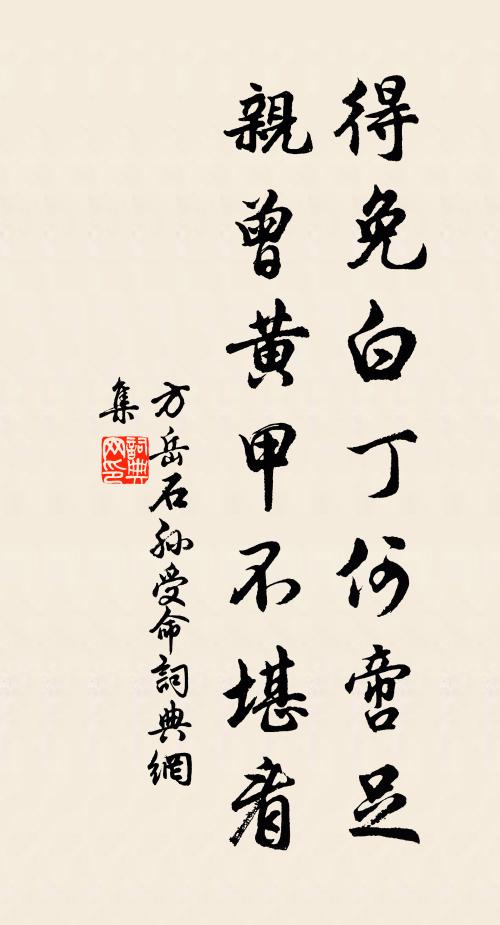 得免白丁何啻足
親曾黃甲不堪看
方岳石孫受命詞典網
集
詞典
网印